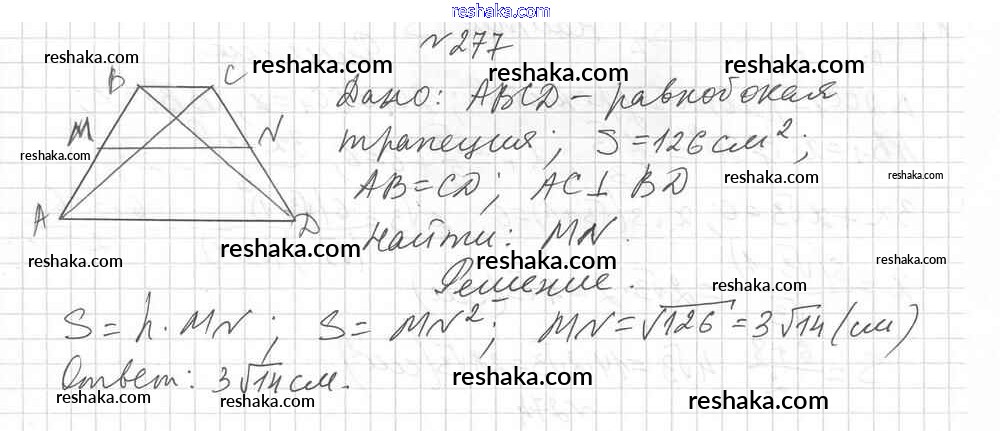 reshaka.com
№277
reshaka.com reshaka.com reshaka.com
B C Дано: ABCD – равнобокая
M N трапеция; S = 126 см²;
reshaka.com reshaka.com reshaka.com
AB = CD; AC ⊥ BD
reshaka.com reshaka.com
A D Найти: MN.
reshaka.com reshaka.com reshaka.com reshaka.com
Решение.
reshaka.com
S = h · MN; S = MN²; MN = √126 = 3√14 (см)
Ответ: 3√14 см.
reshaka.com reshaka.com reshaka.com reshaka.com